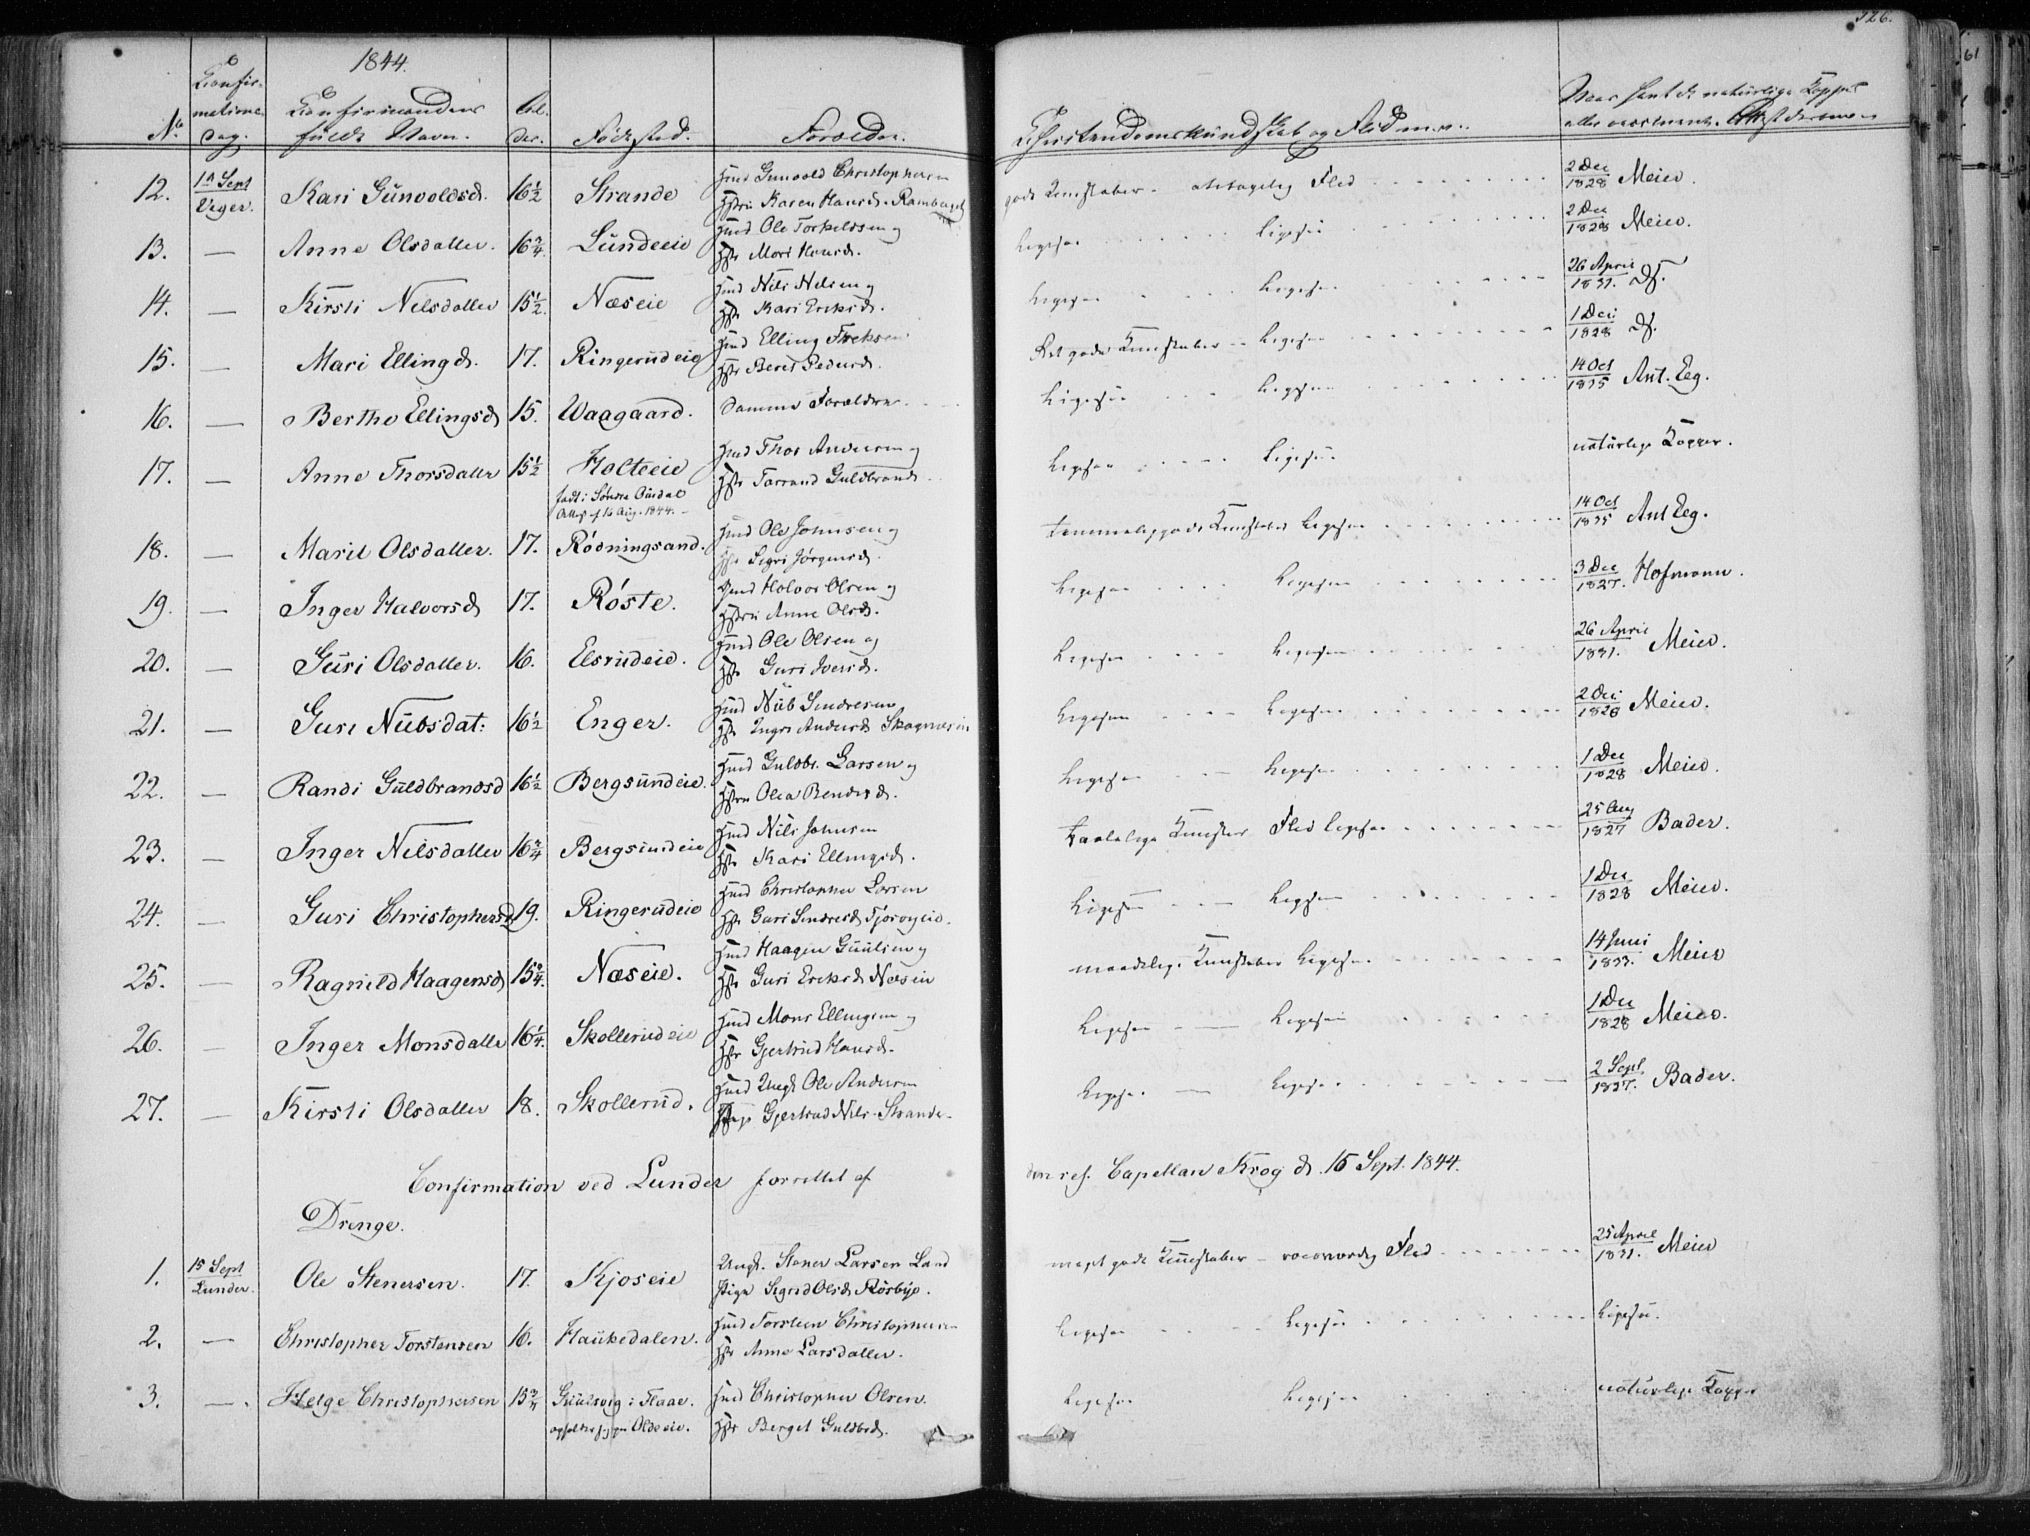 1844.
126.
No
Confir-
mations
Dag.
Confirmandens
fulde Navn.
Al-
der.
Födested.
Forældre.
Christendomskundskab og Flid m.v.
naturlige Kopper
12. 1n Sept Viger. Kari Gunvoldsd. 16½ Strande Huusmd Gunvold Christophersen
Hstr. Karen Hansd. gode Kundskaber - Flid 2 Dec 1828 Meier.
13. — Anne Olsdatter. 16¾ Lundeeie Ole Torkeldsen og
Mari Hansd. ligesaa ligesaa 2 Dec 1828 Meier.
14. — Kirsti Nilsdatter 15½ Næseie Nils Nilsen og
Kari Eriksd. ligesaa ligesaa 26 April 1831. Ds.
15. — Mari Ellingsd. 17. Ringerudeie Elling
Berit Pedersd. gode Kundskaber - ligesaa 1 Dec 1828 Ds.
16. — Berthe Ellingsd 15. Waagaard. Samme Forældre. ligesaa ligesaa 14 Oct 1835 Ant. Eeg.
17. — Anne Thorsdatter 15½ Holteeie Thor Andersen og
Guldbrandsd. ligesaa ligesaa naturlige Kopper.
født i Søndre Ourdal
Attest af 16 Aug. 1844.
18. — Marit Olsdatter. 17. Rödningsand. Ole Johnsen og
Sigri Jörgensd. temmelig gode Kundskaber ligesaa 14 Oct 1835 Ant Eeg.
19. — Inger Halvorsd 17. Röste. Halvor Olsen og
Anne Olsd. ligesaa ligesaa 3 Dec 1827. Hofmann.
20. — Guri Olsdatter. 16. Elsrudeie. Ole Olsen og
Guri Iversd. ligesaa ligesaa 26 April 1831. Meier.
21. — Guri Nubsdat: 16½ Enger. Nub Sendresen
Ingri Andersd. ligesaa ligesaa 2 Dec 1828 Meier.
22. — Randi Guldbrandsd 16½ Bergsundeie. Guldbr. Larsen og
Olea ligesaa ligesaa 1 Dec 1828 Meier.
23. — Inger Nilsdatter 16¾ Bergsundeie Nils Johnsen
Kari Ellingsd. taalelige Kundskaber Flid ligesaa 25 Aug 1827 Bader.
24. — Guri Christophersd 19. Ringerudeie Christopher Larsen
Guri Sendresd ligesaa ligesaa 1 Dec 1828 Meier.
25. — Ragnild Haagensd 15¾. Næseie. Haagen Guulsen og
Guri Eriksd Næseie maadelige Kundskaber ligesaa 14 Juni 1833. Meier
26. — Inger Monsdatter 16¼. Skollerudeie Mons Ellingsen og
Gjertrud Hansd. ligesaa — ligesaa 1 Dec 1828 Meier.
27. — Kirsti Olsdatter 18. Skollerud. Ungk Ole Andersen
Pige Gjertrud Nils. Strande. ligesaa — ligesaa 2 Sept 1827. Bader.
Confirmation ved Lunder forrettet af den res. Capellan Krog d. 15 Sept. 1844.
Drenge.
1. 15 Sept Lunder. Ole Stenersen. 17. Kjoseie Ungk. Stener Larsen Land
Pige Sigrid Olsd. meget gode Kundskaber - roesværdig Flid 25 April 1831. Meier
2. — Christopher Torstensen 16. Haukedalen. Torsten Christophersen
Anne Larsdatter. ligesaa ligesaa ligesaa.
3. — Helge Christophersen 15¾ Guulsvig i Flaae. Christopher Olsen.
Oldeeie. Berget Guldbrd. ligesaa ligesaa naturlige Kopper
61